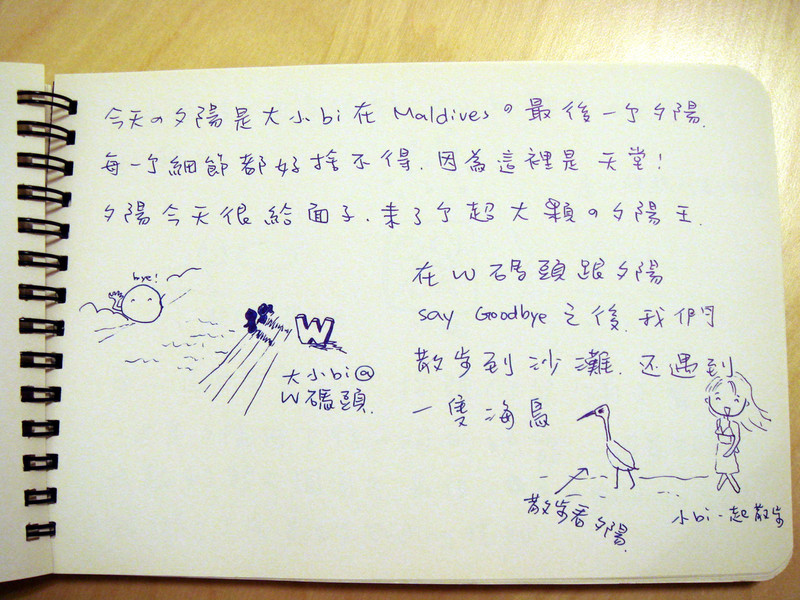 今天の夕陽是大小bi在Maldivesの最後一个夕陽.
每一个細節都好捨不得.因為這裡是天堂!
夕陽今天很給面子.來了个超大顆の夕陽王.
在W碼頭跟夕陽
say Goodbye之後.我們
散步到沙灘.还遇到
一隻海鳥
bye!
W
大小bi@
W碼頭.
散步看夕陽.
小bi一起散步